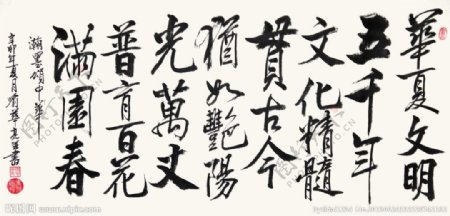 華夏文明
五千年
文化精髓
貫古今
猶如艷陽
光萬丈
普育百花
滿園春
瀚墨頌中華
辛卯年夏月
昵图网 www.nipic.com